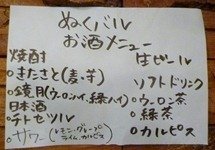 ぬくバル
お酒メニュー
焼酎
・きたさと(麦・芋)
・鏡月(ウーロンハイ、緑ハイ)
日本酒
・チトセツル
・サワー(レモン・グレープ
ライム、カルピス)
生ビール
ソフトドリンク
・ウーロン茶
・緑茶
・カルピス